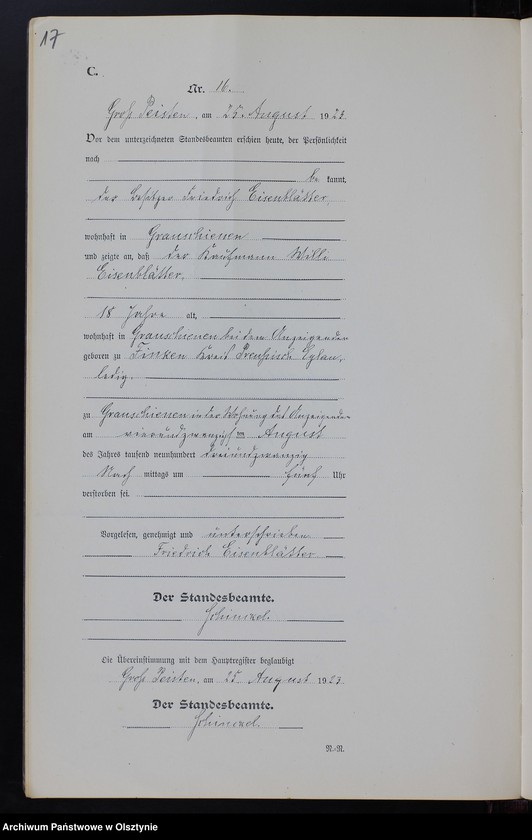 17
C.
Nr. 16.
Groß Peisten, am 25. August 1923
Vor dem unterzeichneten Standesbeamten erschien heute, der Persönlichkeit
nach
be kannt,
der Besitzer Friedrich Eisenblätter,
wohnhaft in Grauschienen
und zeigte an, daß der Kaufmann Willi
Eisenblätter,
18 Jahre alt,
wohnhaft in Grauschienen bei dem Anzeigenden
geboren zu Finken Kreis Preußisch Eylau,
ledig.
zu Grauschienen in der Wohnung des Anzeigenden
am vierundzwanzigsten August
des Jahrs tausend neunhundert dreiundzwanzig
Nach mittags um fünf Uhr
verstorben sei.
Vorgelesen, genehmigt und unterschrieben
Friedrich Eisenblätter
Der Standesbeamte.
Schinkel.
Die Übereinstimmung mit dem Hauptregister beglaubigt
Groß Peisten, am 25. August 1923.
Der Standesbeamte.
Schinkel.
N.-N.
Archiwum Państwowe w Olsztynie